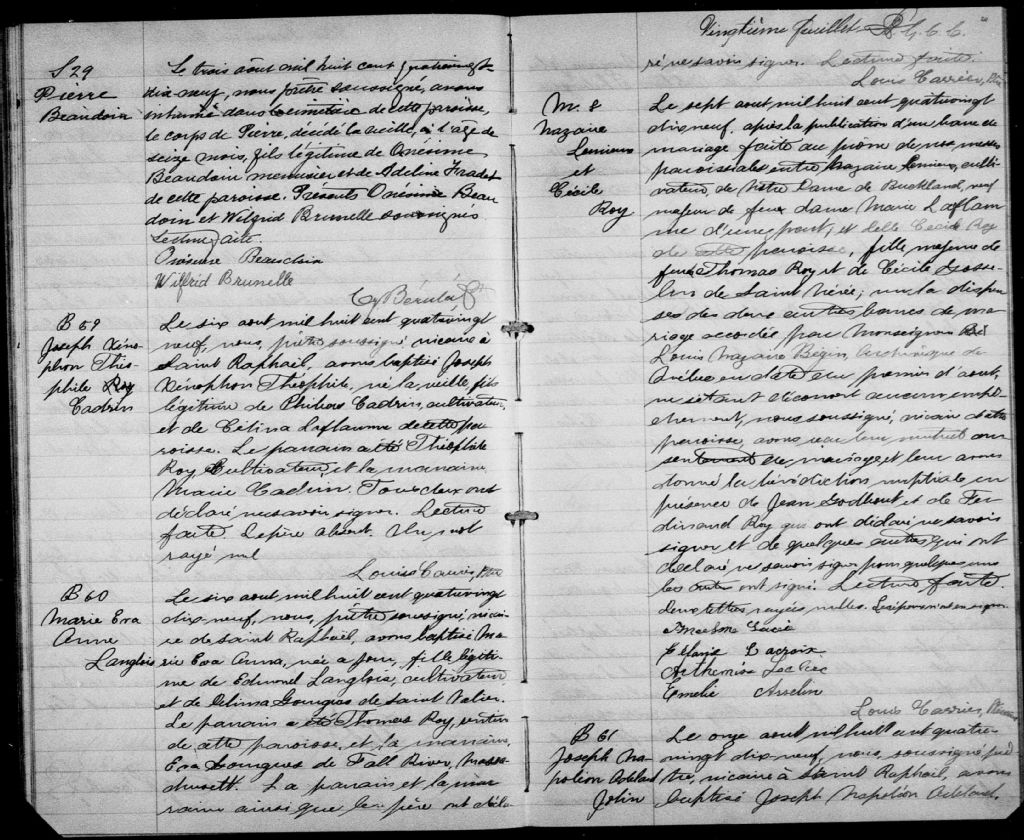 S 29
Pierre
Beaudoin
Le trois août mil huit cent quatrevingt
dix-neuf, nous, prêtre soussigné, avons
inhumé dans le cimetière de cette paroisse,
le corps de Pierre, décédé la veille, à l'âge de
seize mois, fils légitime de Onésime
Beaudoin menuisier et de Adeline Fradet
de cette paroisse. Présents Onésime Beau
doin et Wilfrid Brunelle soussignés
Lecture faite.
Onésime Beaudoin
Wilfrid Brunelle
B 59
Joseph Xéno-
phon Théo-
phile Roy
Cadrin
Le six aout mil huit cent quatrevingt
neuf, nous, prêtre soussigné, vicaire à
Saint Raphaël, avons baptisé Joseph
Xénophon Théophile, né la veille, fils
légitime de Philéas Cadrin, cultivateur,
et de Célina Laflamme de cette pa
roisse. Le parrain a été Théophile
Roy Cultivateur, et la marraine
Marie Cadrin. Tous deux ont
déclaré ne savoir signer. Lecture
faite. Le père absent. Un mot
rayé nul
Louis Carrier, Ptre
B 60
Marie Eva
Anna
Langlois
Le six aout mil huit cent quatrevingt
dix-neuf, nous, prêtre soussigné, vicai-
re de saint Raphaël, avons baptisé Ma
rie Eva Anna, née a jour, fille légiti-
me de Edmond Langlois, cultivateur
et de Célina Gourgues de Saint Valier.
Le parrain a été Thomas Roy,
de cette paroisse, et la marraine,
Eva Gourgues de Fall River, Massa-
chusett. La parrain et la mar
raine ainsi que le père ont décla-
Vingtième feuillet. G. C. C.
ré ne savoir signer. Lecture faite
Louis Carrier, Ptre
M. 8
Nazaire
Lemieux
et
Cécile
Roy
Le sept aout, mil huit cent quatrevingt
dix neuf, après la publication d'un banc de
mariage faite au prône de nos messes
paroissiales entre Nazaire Lemieux, culti-
vateur, de Notre Dame de Buckland, veuf
majeur de feue dame Marie Laflam
me d'une part; et delle Cécile Roy
de cette paroisse, fille majeure de
feu Thomas Roy et de Cécile Gosse-
lin de Saint Nérée; vu la dispen
ses des deux autres bancs de ma
riage accordée par Monseigneur
Louis Nazaire Bégin, Archevêque de
Québec en date du premier d'aout,
ne s'étant découvert aucun empê-
chement, nous soussigné, vicaire de cette
paroisse, avons reçu leur mutuel con
sentement de mariage et leur avons
donné la bénédiction nuptiale en
présence de Jean Godbout et de Fer
dinand Roy qui ont déclaré ne savoir
signer et de quelques autres qui ont
déclaré ne savoir signer pour quelques uns
les autres ont signé. Lecture faite.
deux lettres rayées nulles.
Elanie Lacroix
Arthémise Leclerc
Emelie Asselin
Louis Carrier, Ptre
B 61
Joseph Na-
poléon Adélard
Jolin
Le onze aout, mil huit cent quatre-
vingt dix-neuf, nous, soussigné prê-
tre, vicaire à Saint Raphaël, avons
baptisé Joseph Napoléon Adélard,